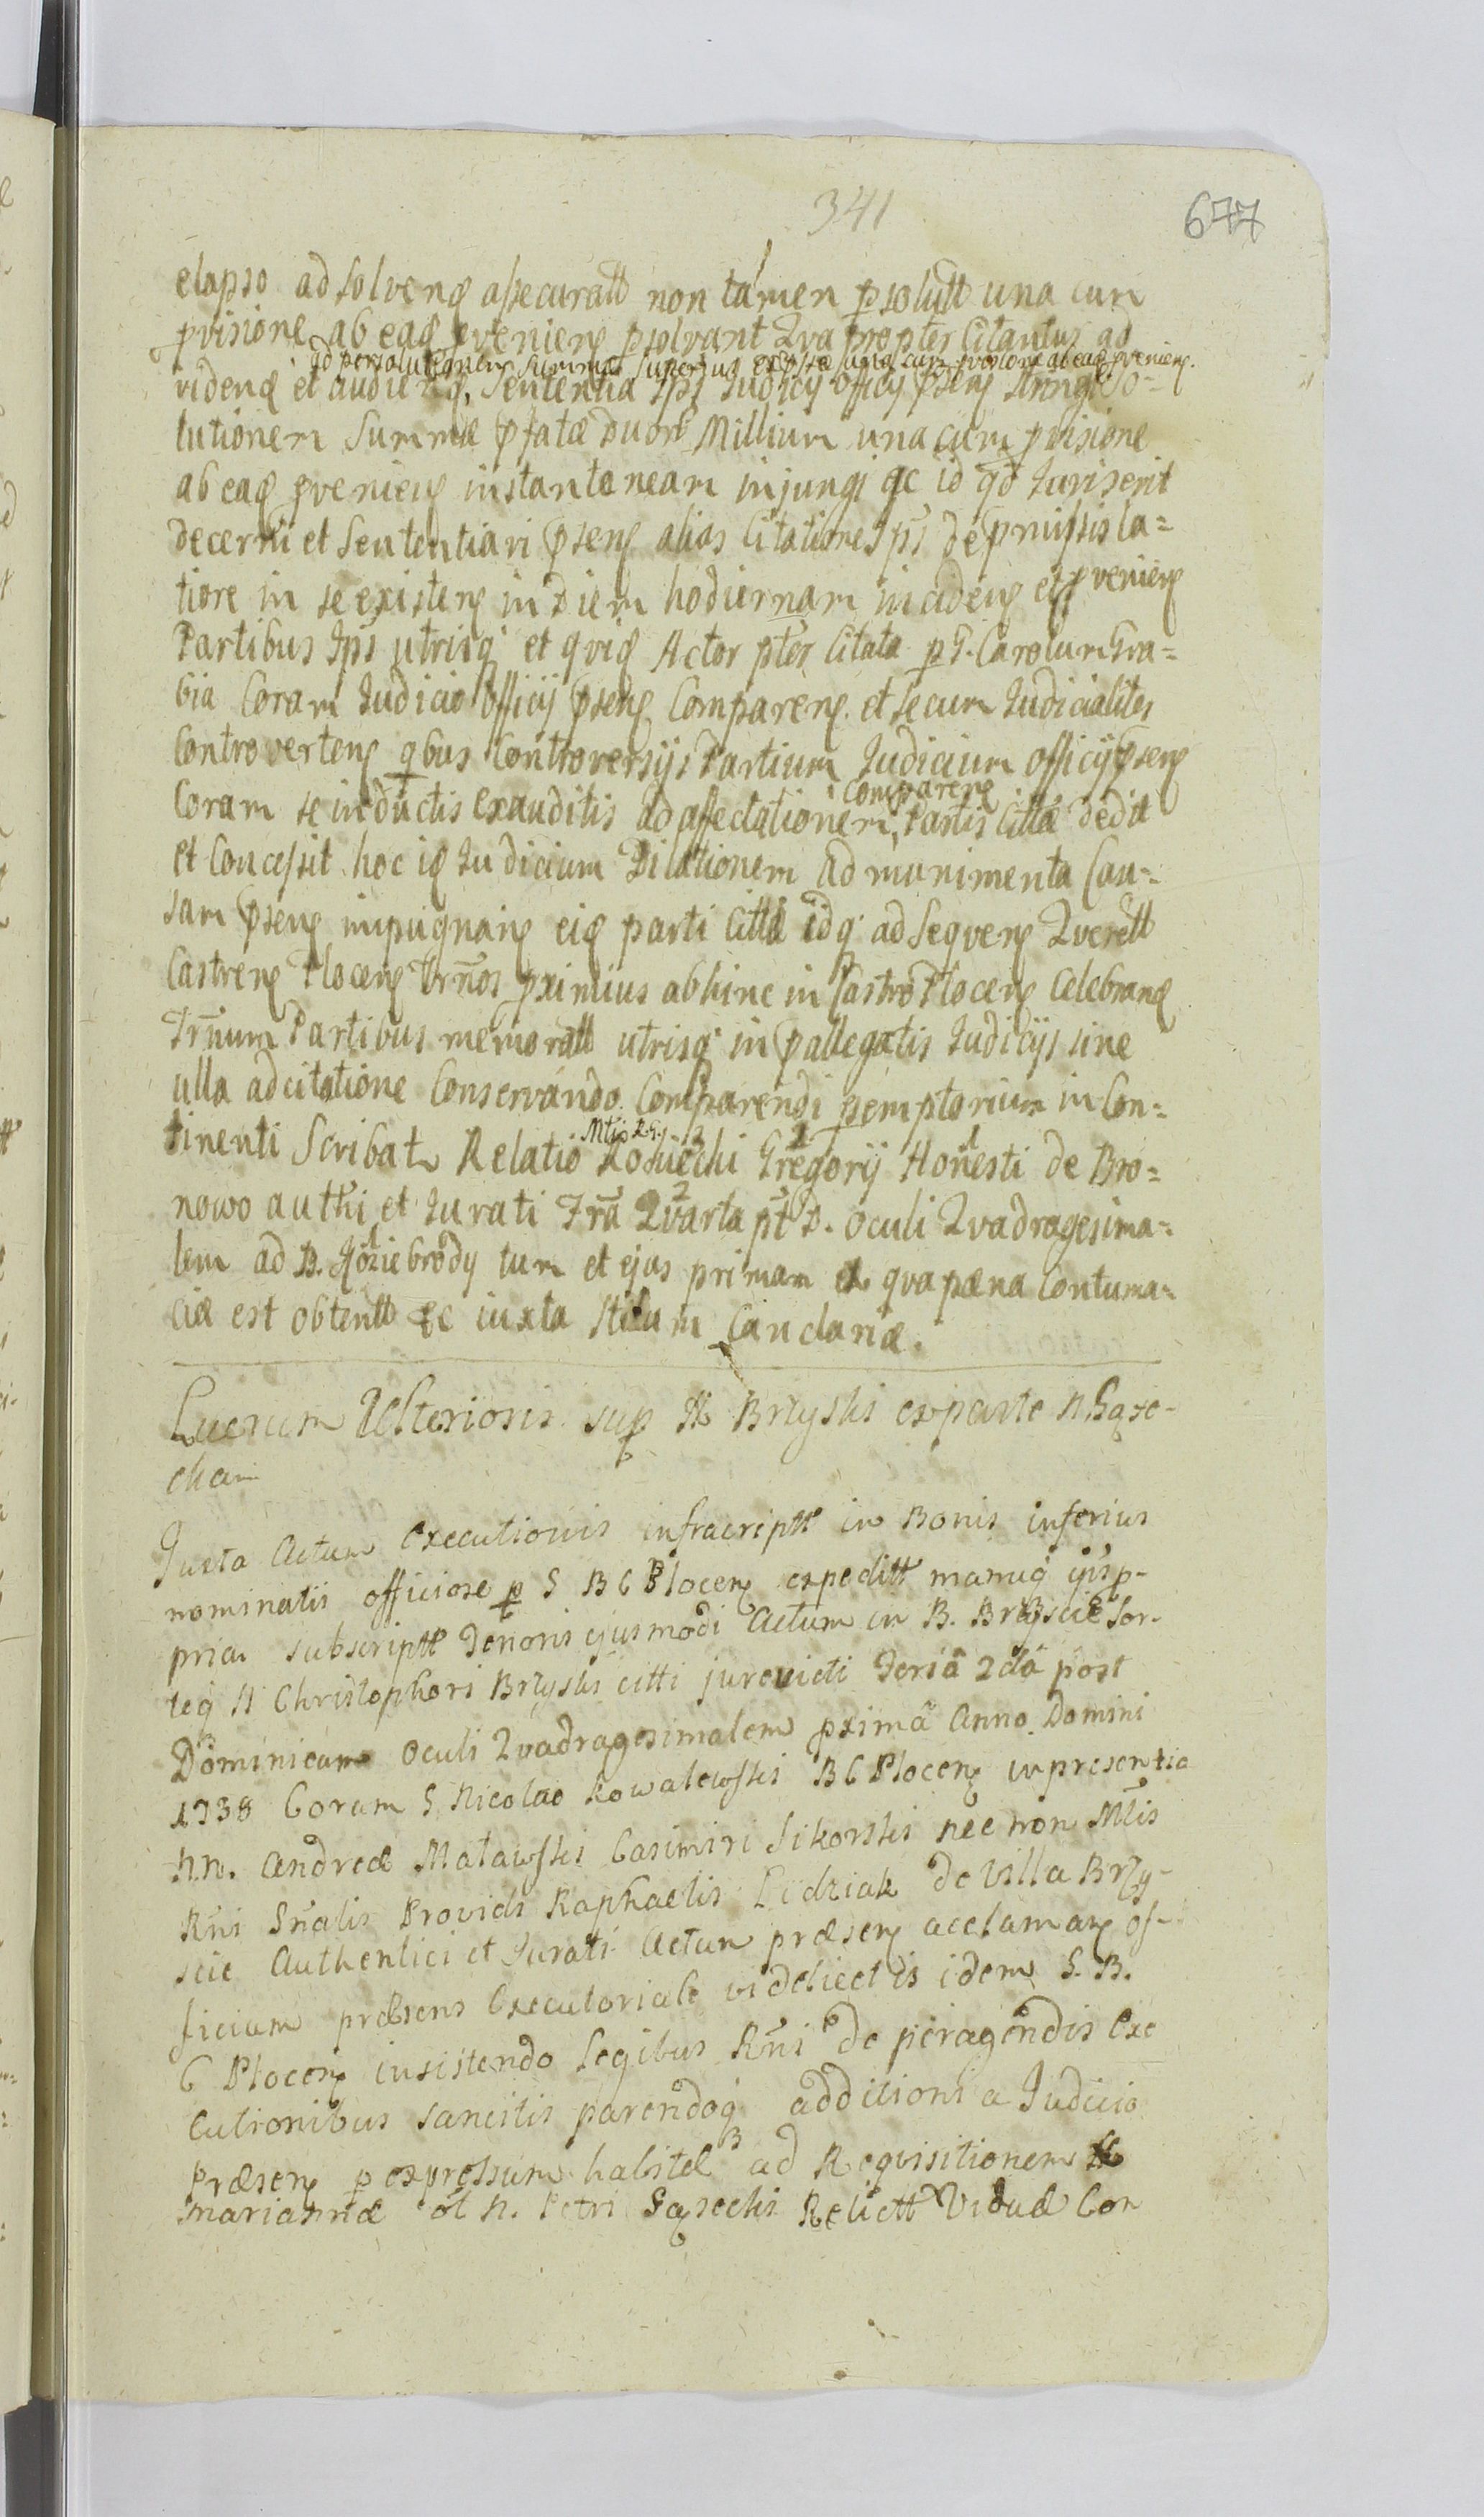 341
677
elapso ad solvend assecuratt non tamen psolutt una cum
pvisione ab ead pveniens psolvant Qva propter Citantur ad
ad persolutionem summæ superius expssa una cum pvisione ab ead pveniens.
vidend et audiend. Sententia Ips Judicij Officij psens stringi So-
lutionem Summæ pfatæ Duor Millium una cum pvisione
ab ead pveniens instantaneam injungi ac id qd Juris erit
decerni et Sententiari psens alias Citatione Ips de pmissis la-
tiore in se existens in Diem hodiernam incidens et pveniens
Partibus Ips utrisq et qvid Actor pter Citata p G. Carolum Gra-
bia Coram Judicio Officij psens Comparens et secum Judicialiter
Controvertens qbus Controversijs Partium Judicium officij psens
Comparens
Coram se inductis exauditis ad affectationem, Partis Cittæ dedit
et Concessit hoc id Judicium Dilationem ad munimenta Cau-
sam psens impugnans eid parti Cittæ idq ad Seqvens Qverell
Castrens Plocens Trnos pximius abhinc in Castro Plocens Celebrand
Trnum Partibus memoratt utrisq in pallegatis Judicijs sine
ulla adcitatione Conservando Comparendi pemptorium in Con-
tinenti Scribat Relatio Mtis RG. Gregorij Honesti de Bro-
nowo authi et Jurati Fra Qvarta pt D. Oculi Qvadragesima-
lem ad B. Koziebrody tum et ejus primam ex qva pæna Contuma-
ciæ est obtentt ac iuxta Stilum Canclariæ.
Lucrum Ulterioris sup N Brzyski ex parte N. Gąse-
ckam
Juxta Actum Executionis infrascriptt in Bonis inferius
nominatis officiose p S B C Plocens expeditt manuq ejus p-
pria subscriptt Tenoris ejusmodi Actum in B. Brzyscie Sor-
teq N Christophori Brzyski citti jurevicti Feria 2da post
Dominicam Oculi Qvadragesimalem pxima Anno Domini
1738 Coram S Nicolao Kowalewski B C Plocens in presentia
N.N. Andreæ Malawski Casimiri Sikorski nec non Mtis
Rni Snalis Providi Raphaelis Lidziak de Villa Brzy-
scie Authentici et Jurati Actum præsens acclamans of-
ficium præsens Executoriale videlicet is idem S. B.
C Plocens insistendo Legibus Rni de peragendis Exe
cutionibus sancitis parendoq additioni a Judicio
Præsens p expressum habitæ ad Reqvisitionem N
Mariannæ ol N. Petri Gąsecki Relictt Viduæ Con